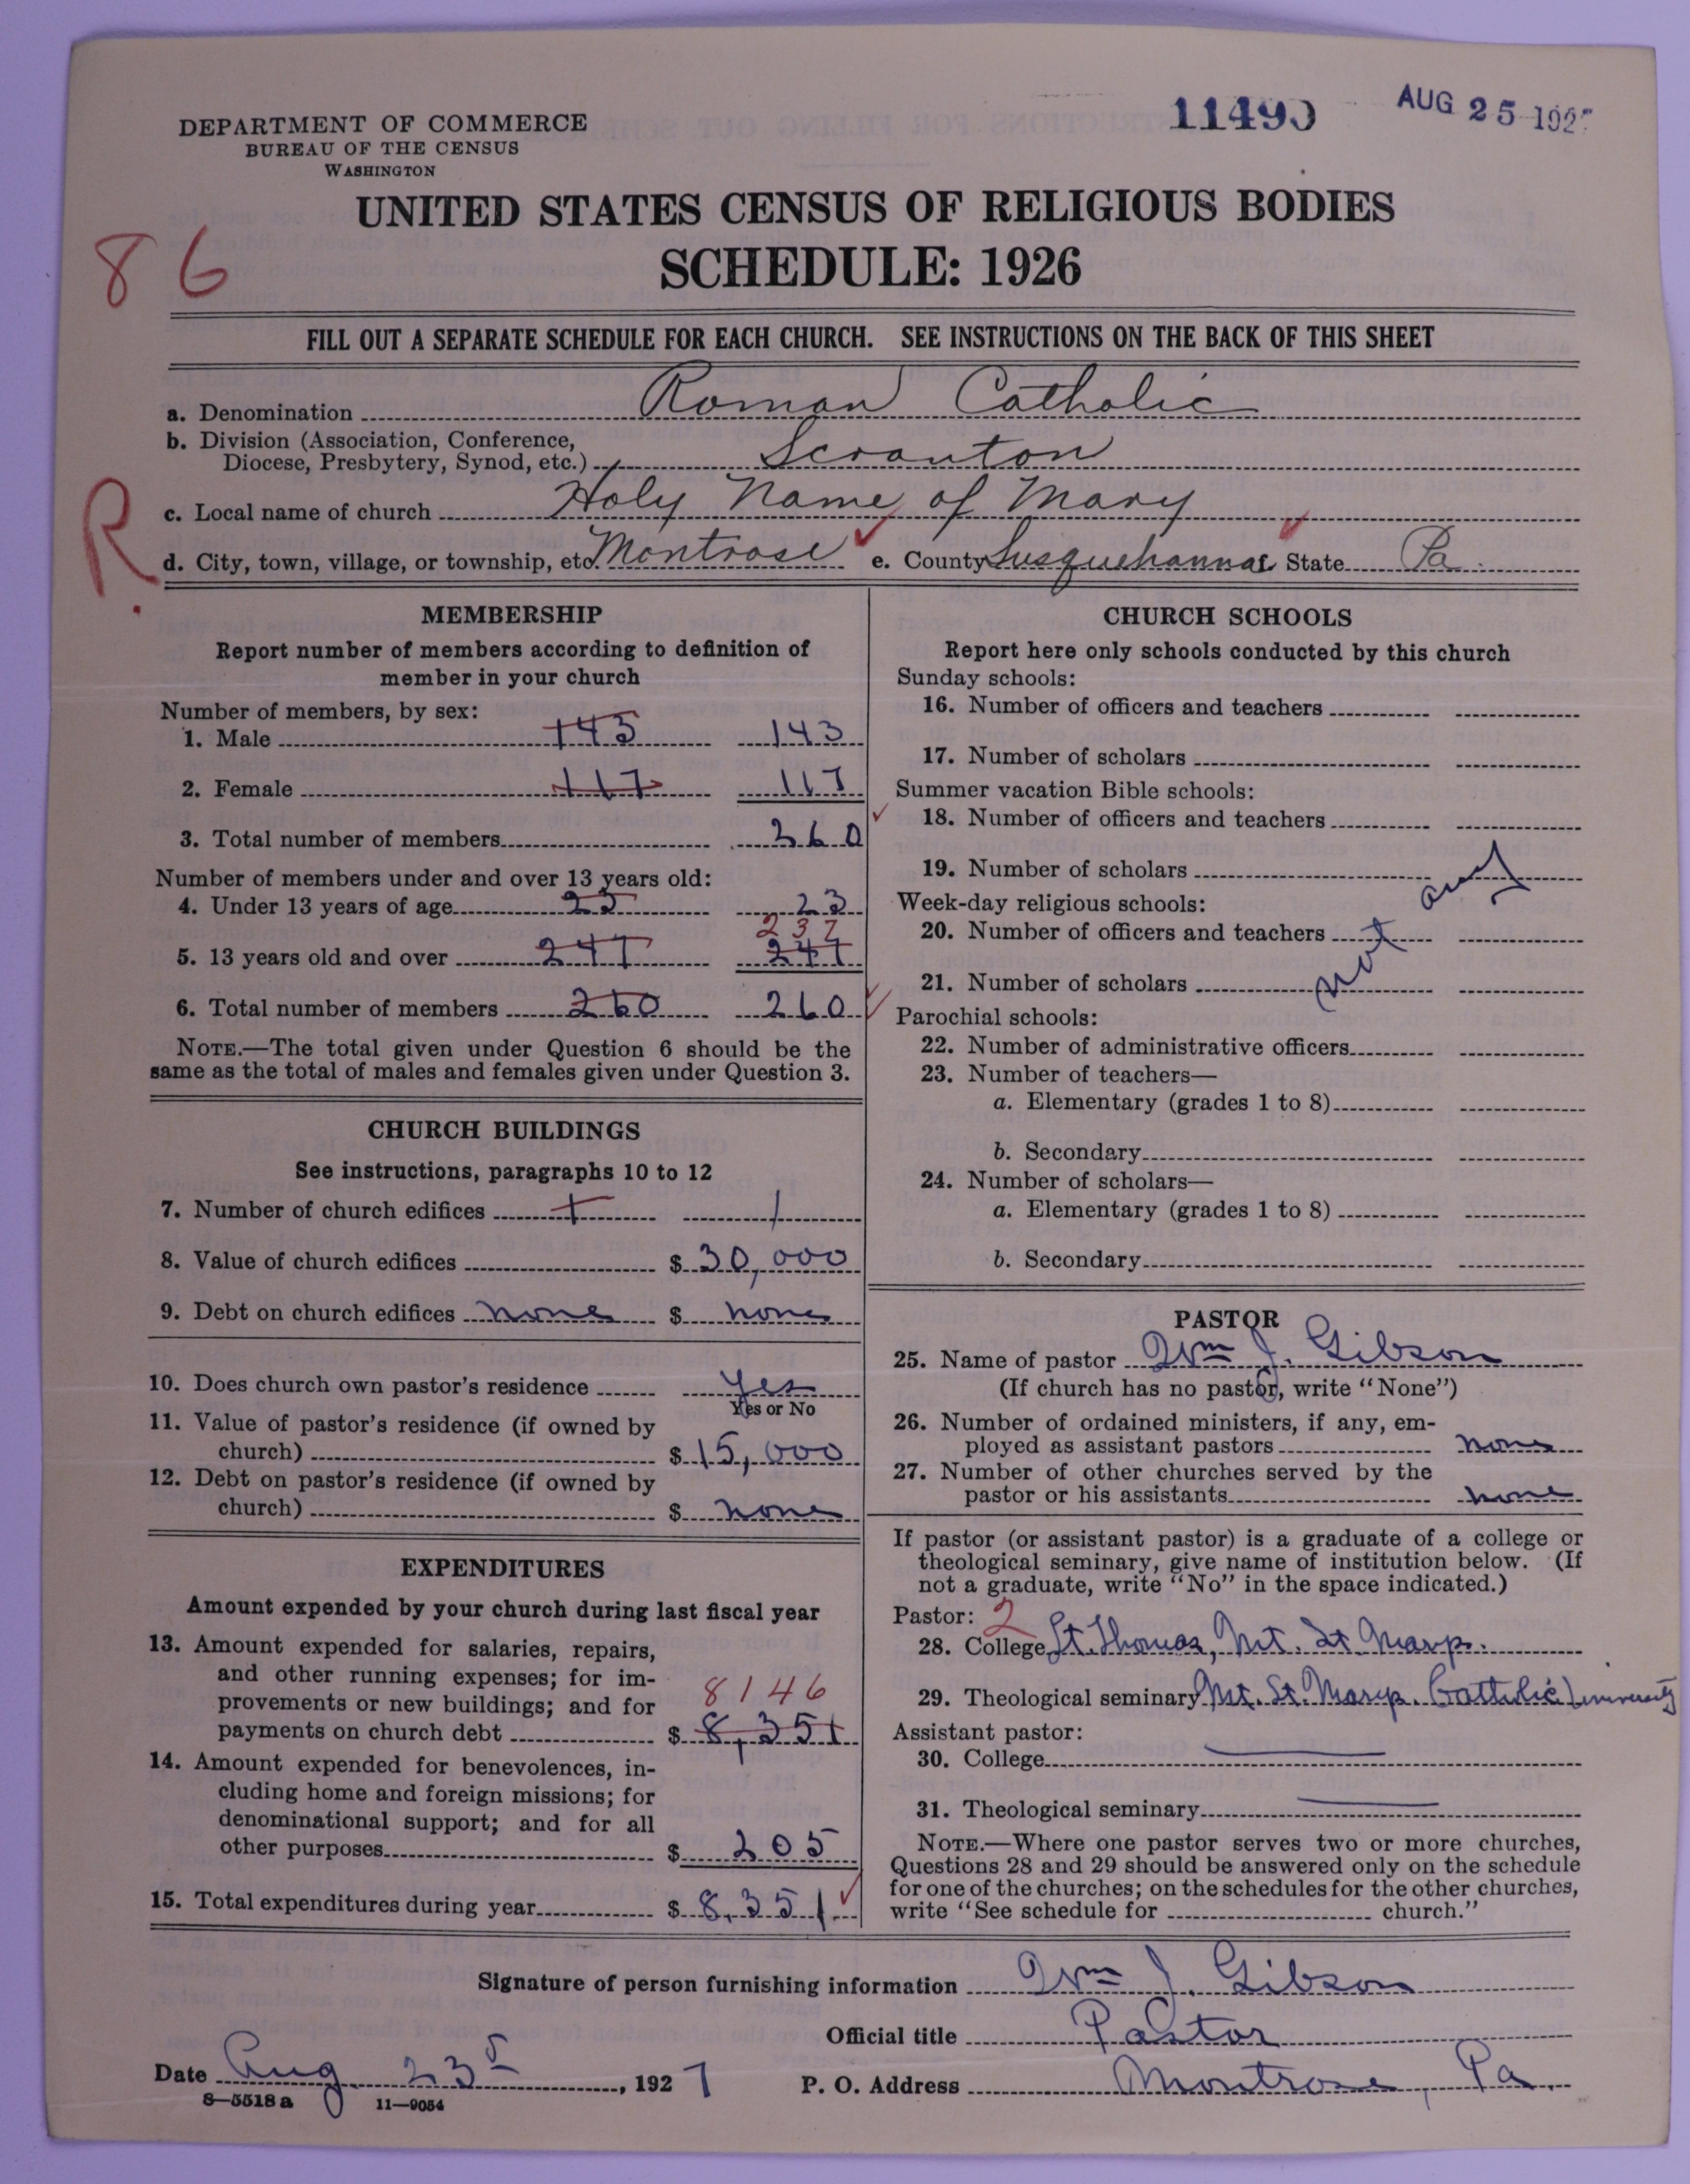 DEPARTMENT OF COMMERCE
BUREAU OF THE CENSUS
WASHINGTON
11490
AUG 25 1927
UNITED STATES CENSUS OF RELIGIOUS BODIES
SCHEDULE: 1926
86
FILL OUT A SEPARATE SCHEDULE FOR EACH CHURCH. SEE INSTRUCTIONS ON THE BACK OF THIS SHEET
a. Denomination Roman Catholic
b. Division (Association, Conference,
Diocese, Presbytery, Synod, etc.) Scranton
R.
c. Local name of church Holy Name of Mary
d. City, town, village, or township, etc. Montrose e. County Susquehanna State Pa.
MEMBERSHIP
Report number of members according to definition of
member in your church
Number of members, by sex:
1. Male 143 143
2. Female 117 117
3. Total number of members 260
Number of members under and over 13 years old:
4. Under 13 years of age 23 23
237
5. 13 years old and over 247 247
6. Total number of members 260 260
NOTE.—The total given under Question 6 should be the
same as the total of males and females given under Question 3.
CHURCH BUILDINGS
See instructions, paragraphs 10 to 12
7. Number of church edifices 1 1
8. Value of church edifices $ 30,000
9. Debt on church edifices none $ none
10. Does church own pastor's residence Yes
Yes or No
11. Value of pastor's residence (if owned by
church) $ 15,000
12. Debt on pastor's residence (if owned by
church) $ none
EXPENDITURES
Amount expended by your church during last fiscal year
13. Amount expended for salaries, repairs,
and other running expenses; for im-
provements or new buildings; and for 8146
payments on church debt $ 8,351
14. Amount expended for benevolences, in-
cluding home and foreign missions; for
denominational support; and for all
other purposes $ 205
15. Total expenditures during year $ 8,351
CHURCH SCHOOLS
Report here only schools conducted by this church
Sunday schools:
16. Number of officers and teachers
17. Number of scholars
Summer vacation Bible schools:
18. Number of officers and teachers
19. Number of scholars
Week-day religious schools:
20. Number of officers and teachers
21. Number of scholars
not any
Parochial schools:
22. Number of administrative officers
23. Number of teachers—
a. Elementary (grades 1 to 8)
b. Secondary
24. Number of scholars—
a. Elementary (grades 1 to 8)
b. Secondary
PASTOR
25. Name of pastor Wm J. Gibson
(If church has no pastor, write "None")
26. Number of ordained ministers, if any, em-
ployed as assistant pastors none
27. Number of other churches served by the
pastor or his assistants none
If pastor (or assistant pastor) is a graduate of a college or
theological seminary, give name of institution below. (If
not a graduate, write "No" in the space indicated.)
Pastor: 2
28. College St. Thomas, Mt. St Marys.
29. Theological seminary Mt. St. Marys. Catholic University
Assistant pastor:
30. College
31. Theological seminary
NOTE.—Where one pastor serves two or more churches,
Questions 28 and 29 should be answered only on the schedule
for one of the churches; on the schedules for the other churches,
write "See schedule for church."
Signature of person furnishing information Wm J. Gibson
Official title Pastor
Date Aug. 23, 1927
P. O. Address Montrose, Pa.
8—5518a 11—9054